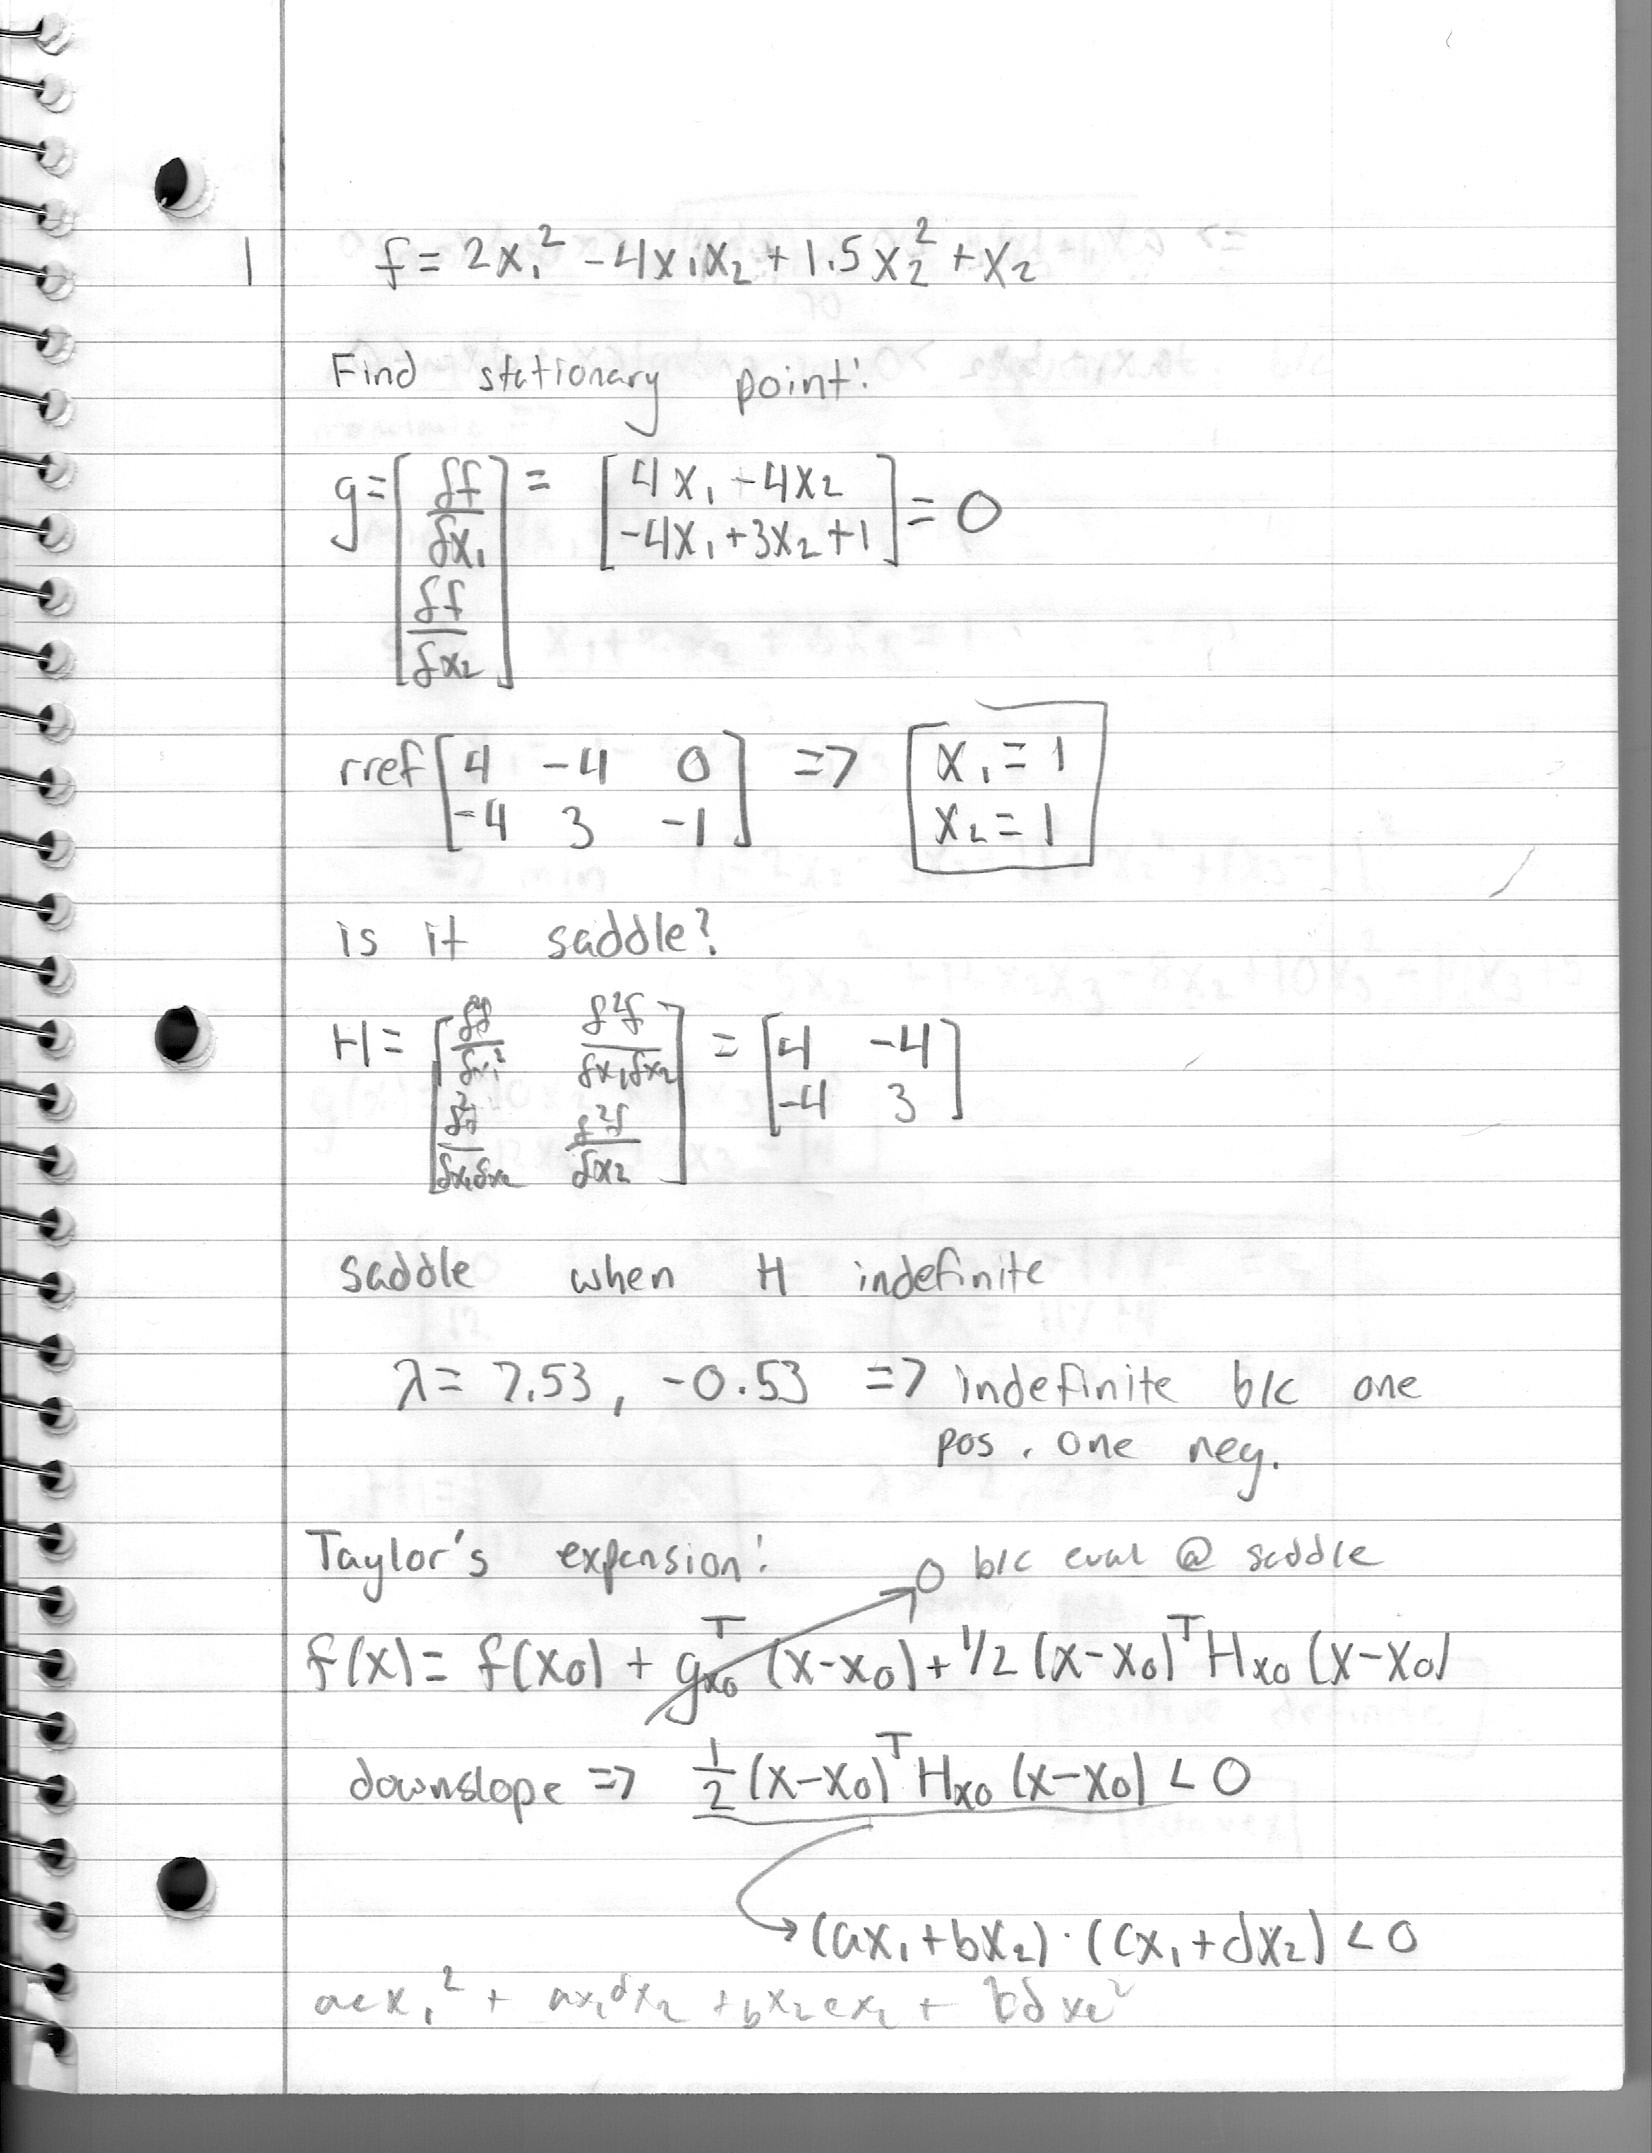 1 f = 2x₁² - 4x₁x₂ + 1.5x₂² + x₂
Find stationary point:
g = [δf/δx₁; δf/δx₂] = [4x₁ - 4x₂; -4x₁ + 3x₂ + 1] = 0
rref [4 -4 0; -4 3 -1] => [x₁ = 1; x₂ = 1]
is it saddle?
H = [δ²f/δx₁² δ²f/δx₁δx₂; δ²f/δx₁δx₂ δ²f/δx₂] = [4 -4; -4 3]
saddle when H indefinite
λ = 7.53, -0.53 => indefinite b/c one
pos, one neg.
Taylor's expansion:
0 b/c eval @ saddle
f(x) = f(x₀) + gₓ₀ᵀ (x-x₀) + 1/2 (x-x₀)ᵀ Hₓ₀ (x-x₀)
downslope => 1/2 (x-x₀)ᵀ Hₓ₀ (x-x₀) < 0
(ax₁ + bx₂) · (cx₁ + dx₂) < 0
acx₁² + ax₁dx₂ + bx₂cx₁ + bdx₂²